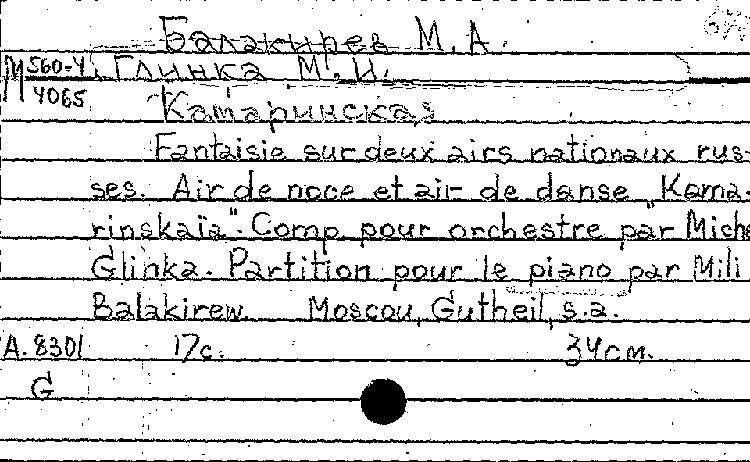 Балакирев М. А.
М 560-4 Глинка М. И.
4065 Камаринская
Fantaisie sur deux airs nationaux rus-
ses. Air de noce et air de danse "Kama-
rinskaïa". Comp. pour orchestre par Miche
Glinka. Partition pour le piano par Mili
Balakirew. Moscou, Gutheil, s.a.
A. 8301 17c. 34cm.
G